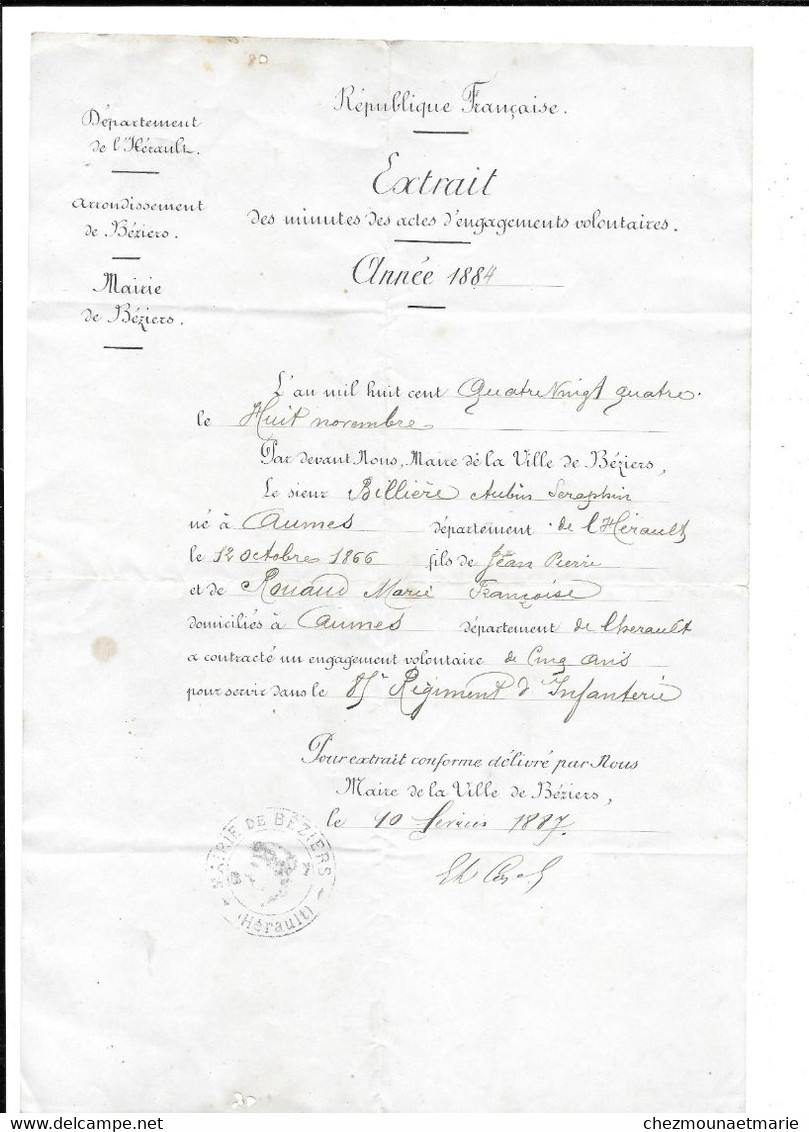 Département
de l'Hérault.
Arrondissement
de Béziers.
Mairie
de Béziers.
République Française.
Extrait
des minutes des actes d'engagements volontaires.
Année 1884
L'an mil huit cent Quatre Vingt quatre
le Huit novembre
Par devant Nous, Maire de la Ville de Béziers,
Le sieur Billière Aubin Seraphin
né à Aumes département de l'Hérault
le 12 octobre 1866 fils de Jean Pierre
et de Rouaud Marie Françoise
domiciliés à Aumes département de l'herault
a contracté un engagement volontaire de Cinq ans
pour servir dans le Régiment d'Infanterie
Pour extrait conforme délivré par Nous
Maire de la Ville de Béziers,
le 10 fevrier 1887.
MAIRIE DE BÉZIERS
(Hérault)
chezmounaetmarie